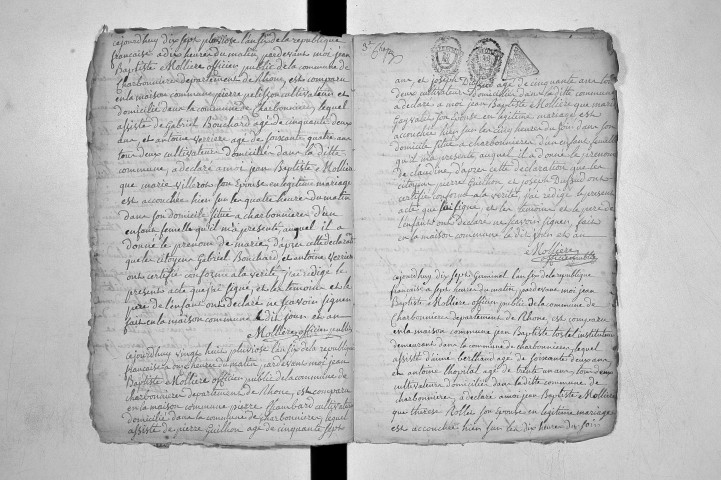 cejourdhuy dix sept pluviose l'an six de la republique
francaise a dix heures du matin pardevant moi jean
Baptiste Mollière officier public de la commune de
Charbonniere departement de Rhone, est comparu
en la maison commune pierre pelisson cultivateur et
domicilié dans la commune de Charbonniere, lequel
assisté de Gabriel Bouchard agé de cinquante deux
ans et antoine verriere agé de soixante quatre ans
tous deux cultivateurs domiciliés dans la ditte
commune, a déclaré a moi jean Baptiste Mollière
que marie villerot son Epouse en legitime mariage
est accouchée hier sur les quatre heures du matin
dans son domicile situé a charbonniere d'un
enfant femelle qu'il m'a presenté, auquel il a
donné le prenom de marie, d'apres cette declaration
que les citoyens Gabriel Bouchard et antoine verriere
ont certifié conforme a la verité, j'ai redigé le
present acte que j'ai signé, et les temoins et le
pere de l'enfant ont declaré ne scavoir signer,
fait en la maison commune le dit jour et an
Mollière officier public
cejourdhuy vingt huit pluviose l'an six de la republique
francaise a onze heures du matin, pardevant moi jean
Baptiste Mollière officier public de la commune de
charbonniere departement de Rhone, est comparu
en la maison commune pierre Chambard cultivateur
domicilié dans la commune de charbonniere, lequel
assisté de pierre Guillon agé de cinquante sept
ans, et joseph agé de cinquante ans tous
deux cultivateurs domiciliés dans la ditte commune
a declaré a moi jean Baptiste Mollière que marie
son Epouse en legitime mariage est
accouchée hier sur les heures du soir dans son
domicile situé a charbonniere d'un enfant femelle
qu'il m'a presenté auquel il a donné le prenom
de claudine, d'apres cette declaration que les
citoyens pierre Guillon et joseph ont
certifié conforme a la verité, j'ai redigé le present
acte que j'ai signé, et les temoins et le pere de
l'enfant ont declaré ne scavoir signer, fait
en la maison commune le dit jour et an
Mollière
officier public
cejourdhuy dix sept Germinal l'an six de la republique
francaise a sept heures du matin, pardevant moi jean
Baptiste Mollière officier public de la commune de
Charbonniere departement de Rhone, est comparu
en la maison commune jean Baptiste tostel instituteur
demeurant dans la commune de charbonniere, lequel
assisté d'aimé berthaud agé de soixante deux ans
et antoine lhopital agé de trente un ans, tous deux
cultivateurs domiciliés dans la ditte commune de
charbonniere, a declaré a moi jean Baptiste Mollière
que therese Rollet son épouse en legitime mariage
est accouchée hier sur les dix heures du soir